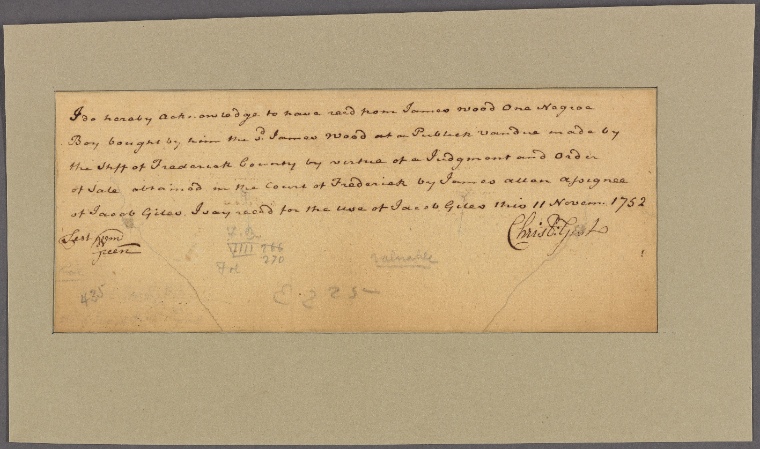 I do hereby acknowledge to have recd from James Wood One Negroe
Boy bought by him the sd. James Wood at a Publick Vandue made by
the Shff of Frederick County by virtue of a Judgment and Order
of Sale obtained in the Court of Frederick by James allan Assignee
of Jacob Giles. I say recd for the use of Jacob Giles this 11 Novem. 1752
Test Wm Green
Christr. Gist
266
270
valuable
435